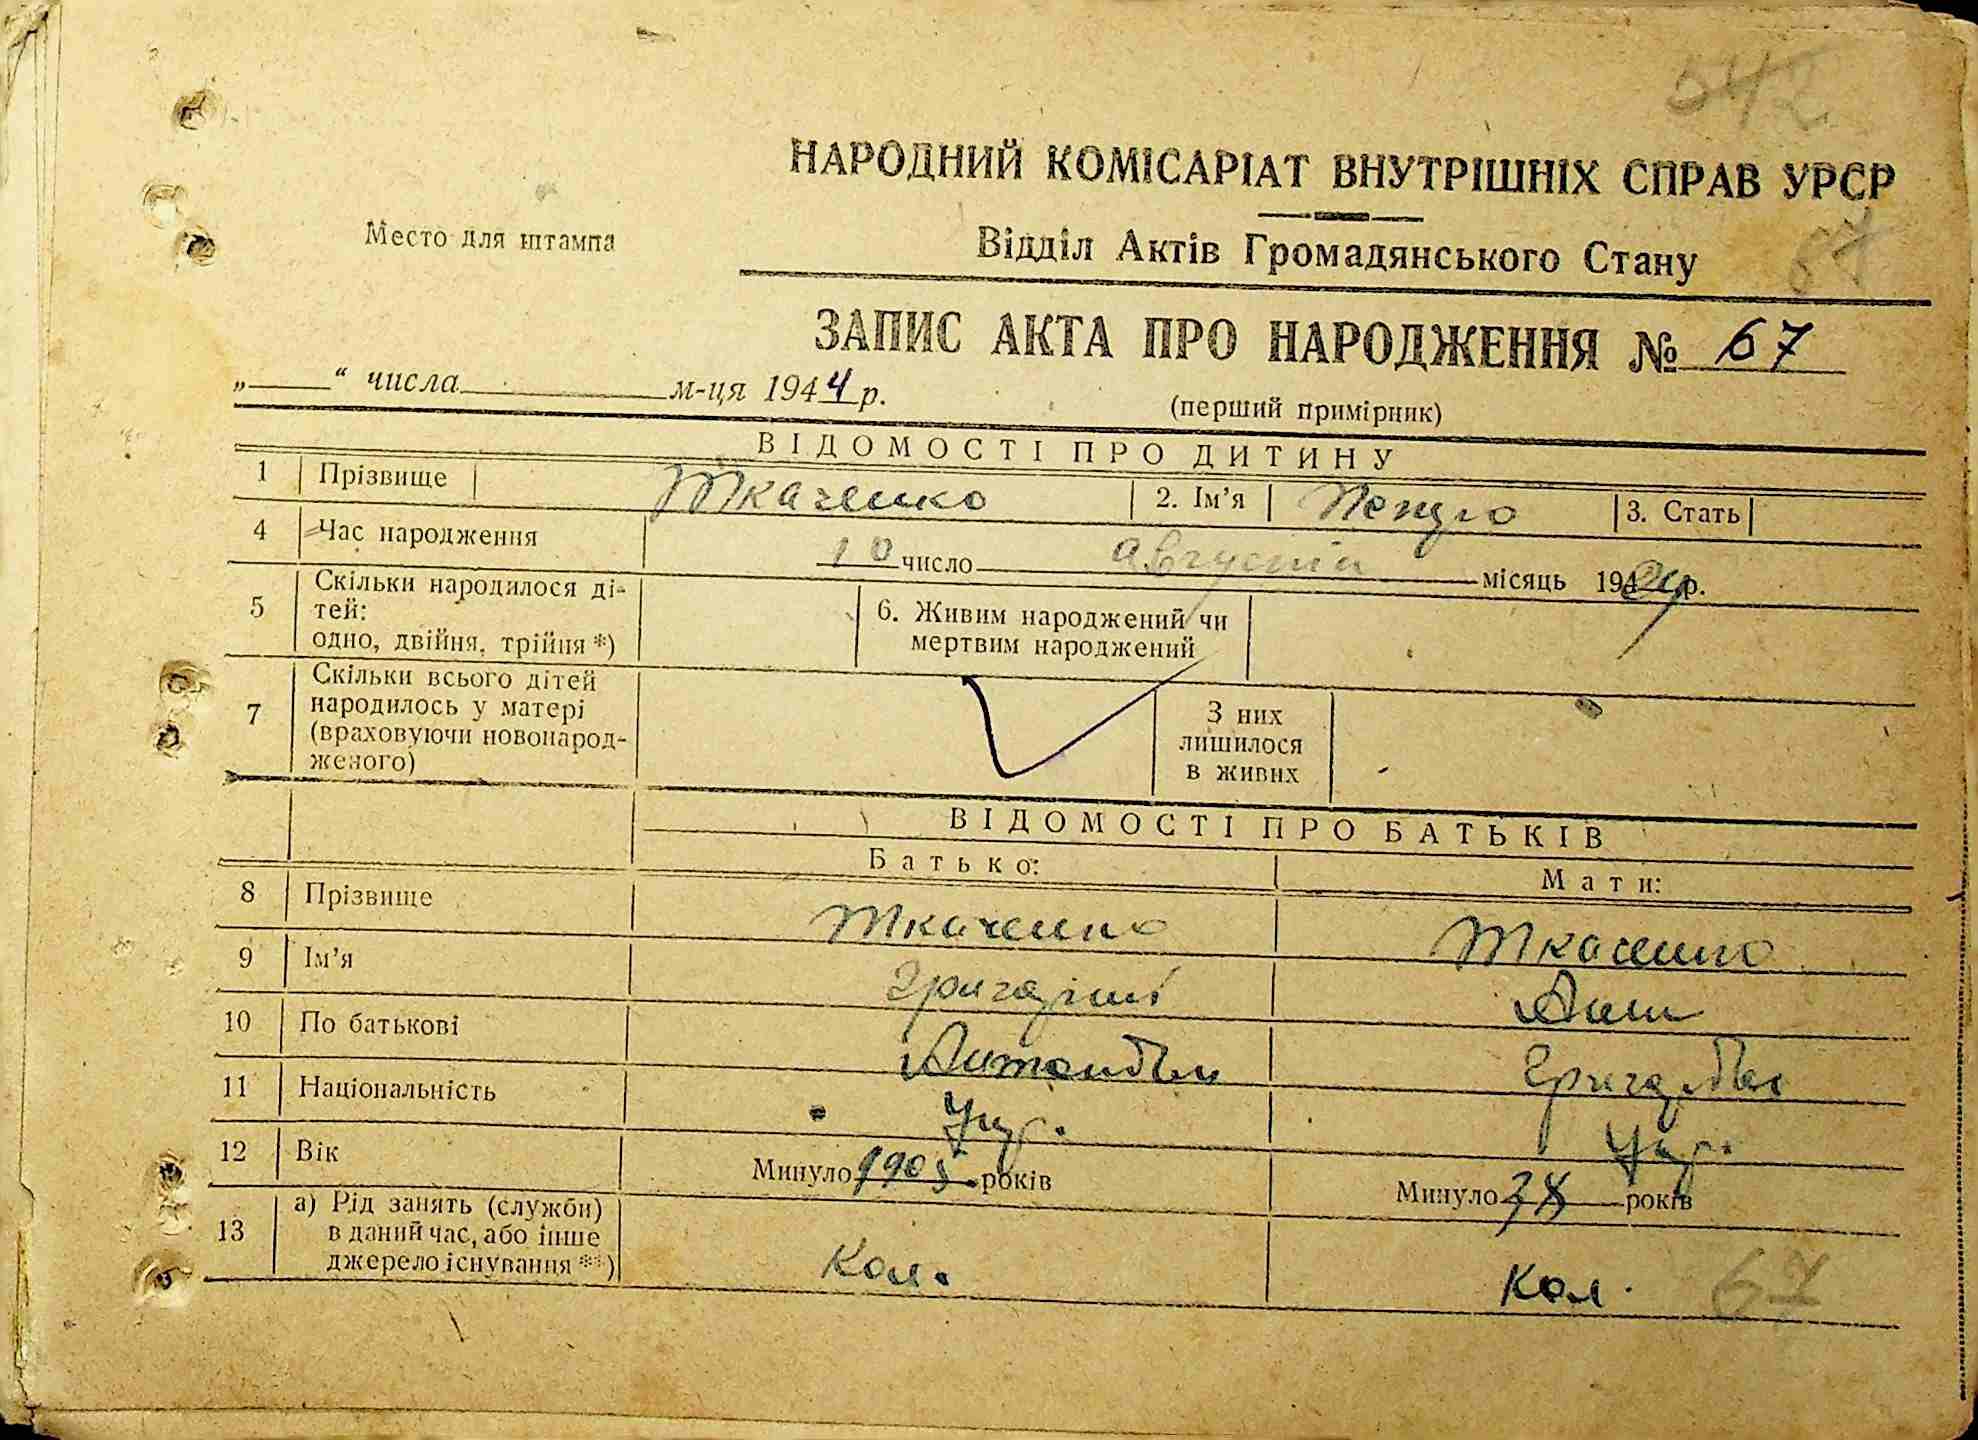 542
НАРОДНИЙ КОМІСАРІАТ ВНУТРІШНІХ СПРАВ УРСР
Место для штампа
Відділ Актів Громадянського Стану
67
ЗАПИС АКТА ПРО НАРОДЖЕННЯ № 67
„ “ числа м-ця 1944 р.
(перший примірник)
ВІДОМОСТІ ПРО ДИТИНУ
1 Прізвище Ткаченко 2. Ім’я Петро 3. Стать
4 Час народження 10 число августа місяць 194 р.
5 Скільки народилося ді-
тей:
одно, двійня, трійня *)
6. Живим народжений чи
мертвим народжений
7 Скільки всього дітей
народилось у матері
(враховуючи новонарод-
женого)
З них
лишилося
в живих
ВІДОМОСТІ ПРО БАТЬКІВ
Батько: Мати:
8 Прізвище Ткаченко Ткаченко
9 Ім’я Григорій
10 По батькові
11 Національність Укр. Укр.
12 Вік Минуло 1905 років Минуло років
13 а) Рід занять (служби)
в даний час, або інше
джерело існування **)
Кол. Кол.
67